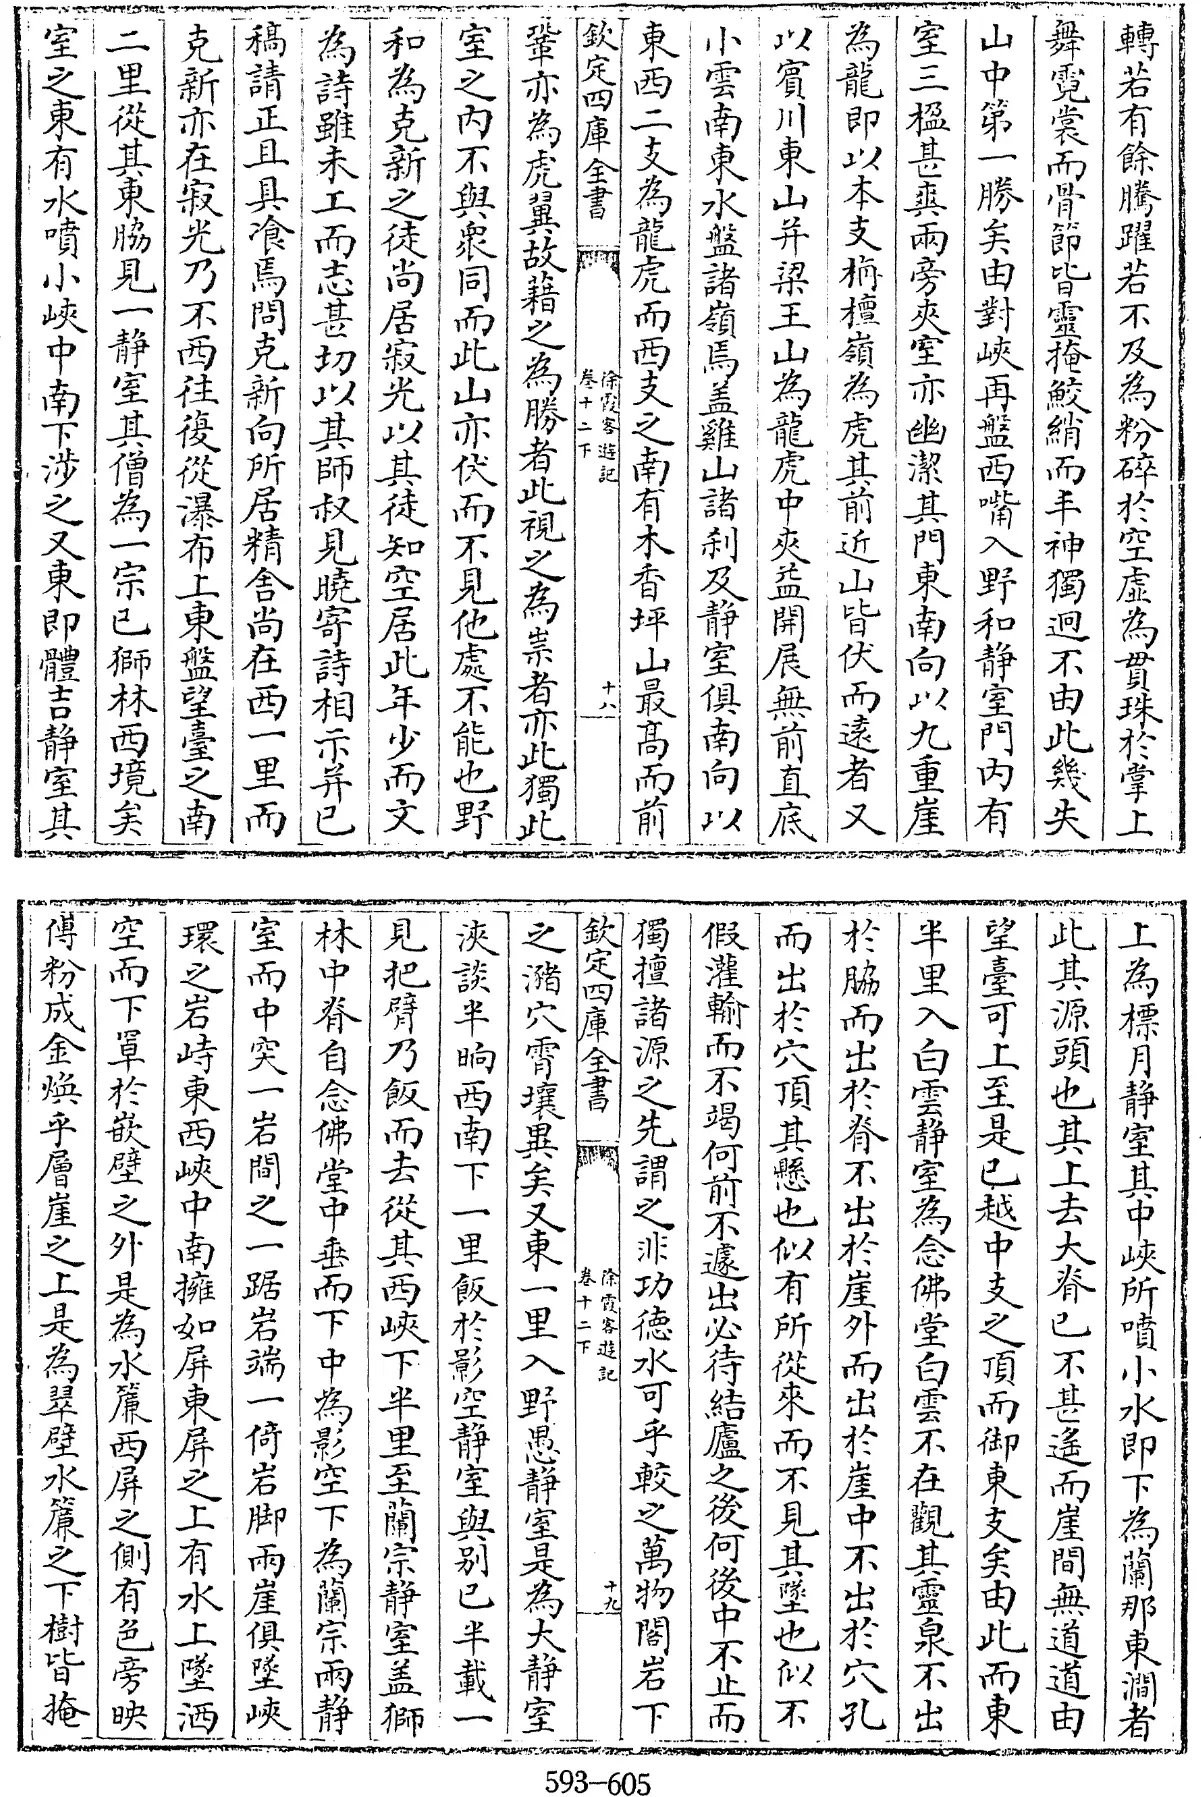 轉若有餘騰躍若不及為粉碎於空虛為貫珠於掌上
舞霓裳而骨節皆靈掩鮫綃而丰神獨迥不由此幾失
山中第一勝矣由對峽再盤西嘴入野和静室門内有
室三楹甚爽兩旁夾室亦幽潔其門東南向以九重崖
為龍即以本支栴檀嶺為虎其前近山皆伏而遠者又
以賓川東山并梁王山為龍虎中夾益開展無前直底
小雲南東水盤諸嶺焉盖雞山諸刹及静室俱南向以
東西二支為龍虎而西支之南有木香坪山最高而前
欽定四庫全書
徐霞客遊記
卷十二下
十八
鞏亦為虎翼故藉之為勝者此視之為祟者亦此獨此
室之内不與衆同而此山亦伏而不見他處不能也野
和為克新之徒尚居寂光以其徒知空居此年少而文
為詩雖未工而志甚切以其師叔見曉寄詩相示并已
稿請正且具飡焉問克新向所居精舍尚在西一里而
克新亦在寂光乃不西往復從瀑布上東盤望臺之南
二里從其東脇見一静室其僧為一宗已獅林西境矣
室之東有水噴小峽中南下涉之又東即體吉静室其
上為標月静室其中峽所噴小水即下為蘭那東澗者
此其源頭也其上去大脊已不甚遙而崖間無道道由
望臺可上至是已越中支之頂而御東支矣由此而東
半里入白雲静室為念佛堂白雲不在觀其靈泉不出
於脇而出於脊不出於崖外而出於崖中不出於穴孔
而出於穴頂其懸也似有所從來而不見其墜也似不
假灌輸而不竭何前不遽出必待結廬之後何後中不止而
獨擅諸源之先謂之非功德水可乎較之萬物閣岩下
欽定四庫全書
徐霞客遊記
卷十二下
十九
之瀦穴霄壤異矣又東一里入野愚静室是為大静室
浹談半晌西南下一里飯於影空静室與别已半載一
見把臂乃飯而去從其西峽下半里至蘭宗静室盖獅
林中脊自念佛堂中垂而下中為影空下為蘭宗兩静
室而中突一岩間之一踞岩端一倚岩脚兩崖俱墜峽
環之岩峙東西峽中南擁如屏東屏之上有水上墜洒
空而下罩於嵌壁之外是為水簾西屏之側有色旁映
傅粉成金煥乎層崖之上是為翠壁水簾之下樹皆掩
593-605